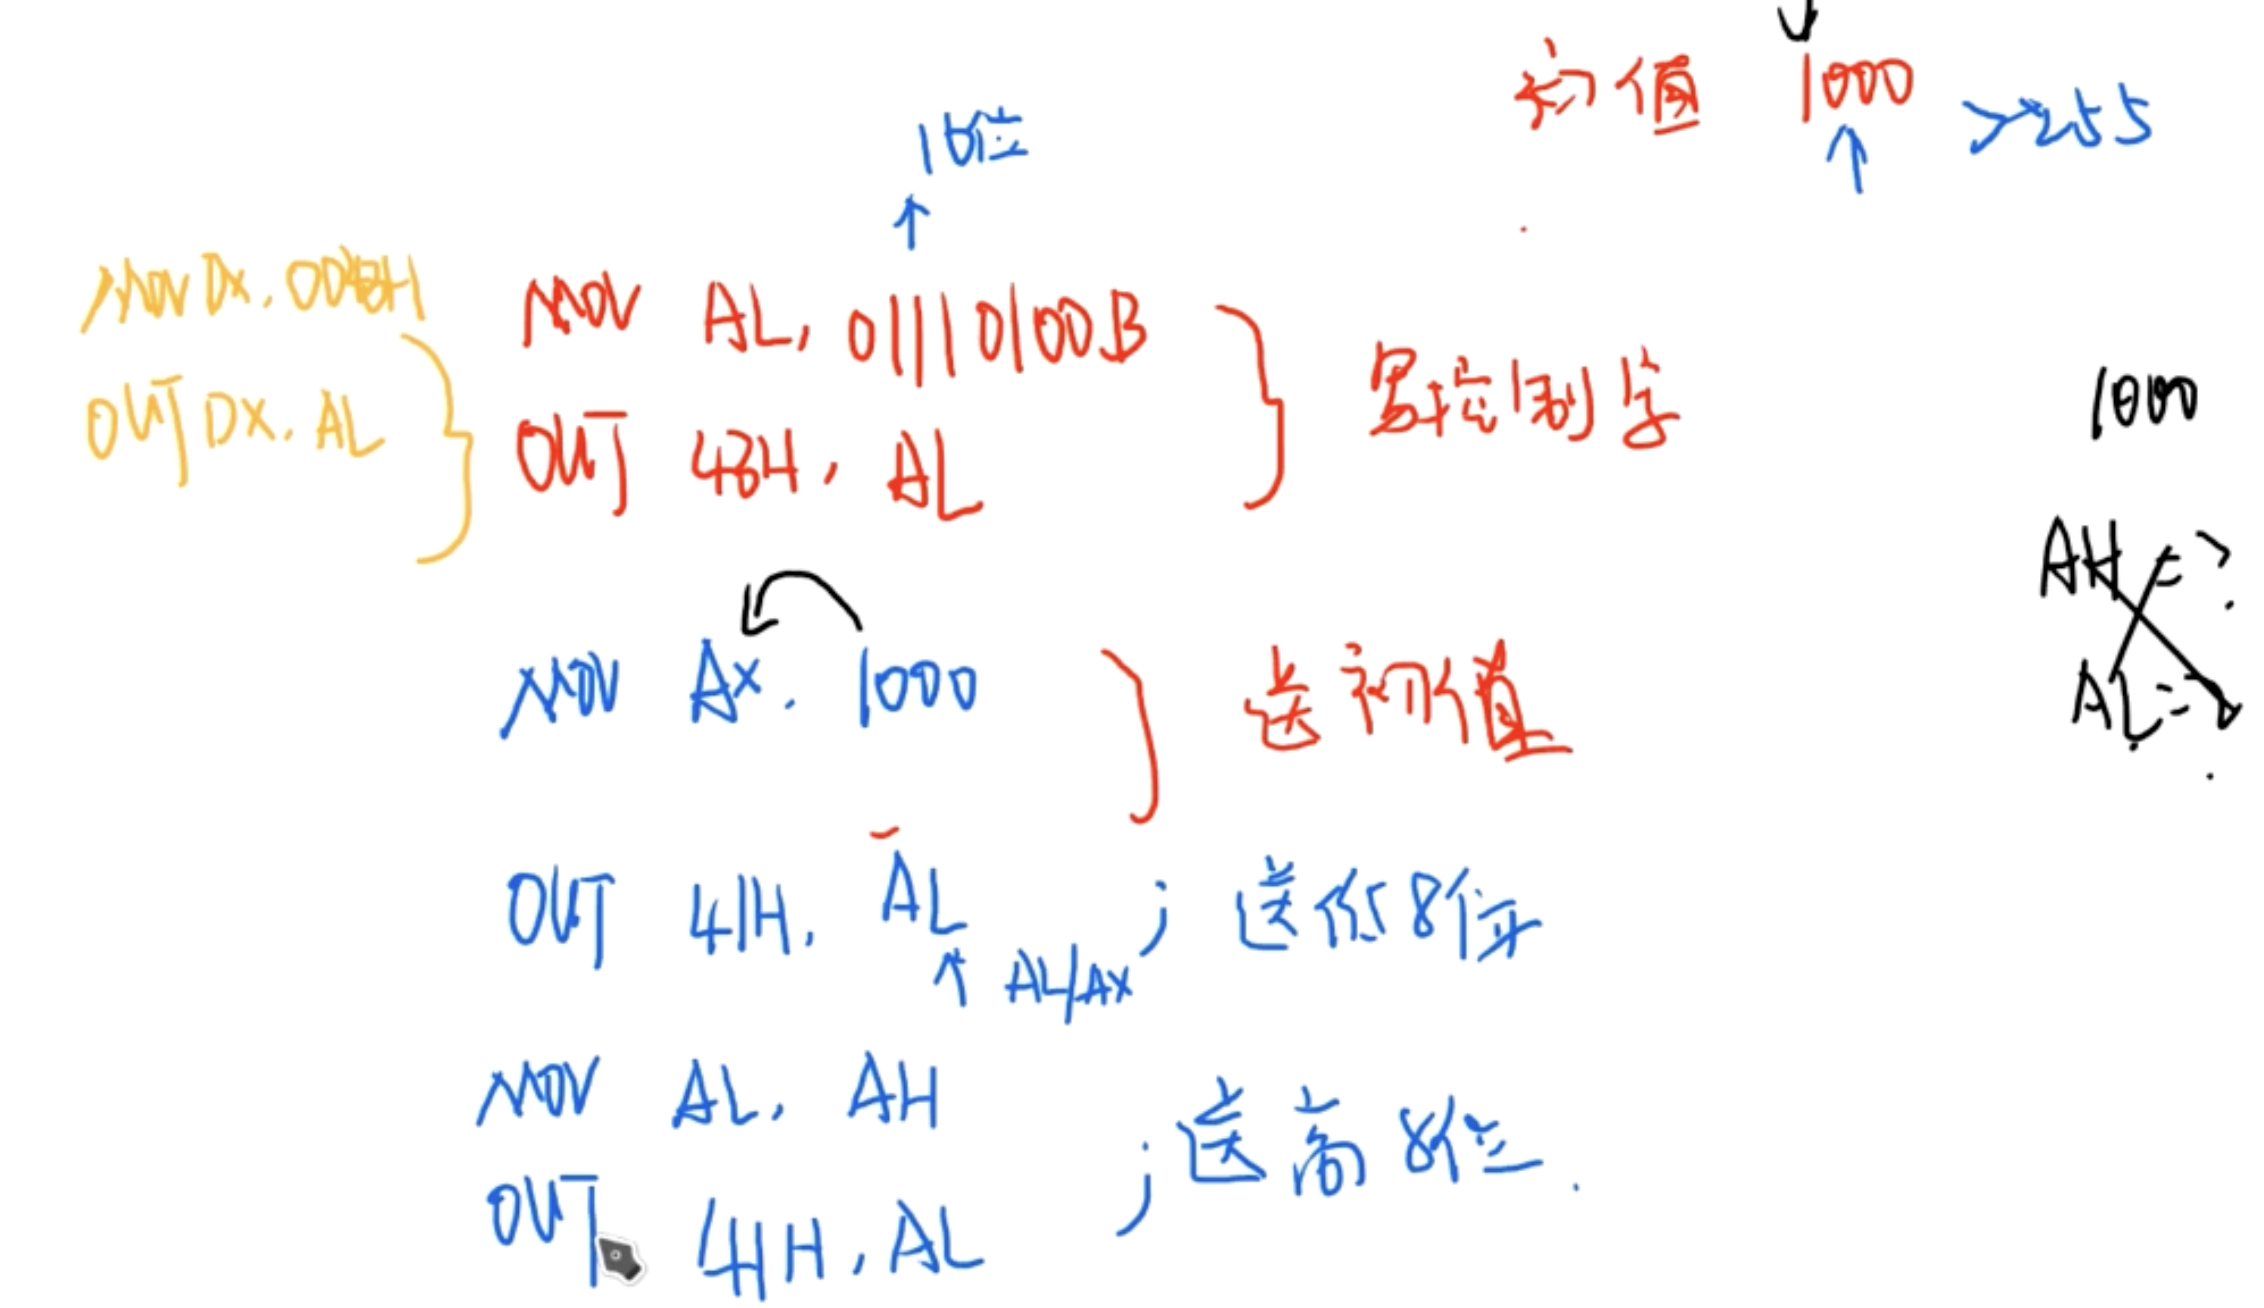 初值 1000 >255
16位
MOV DX, 0043H
OUT DX, AL
MOV AL, 01110100B
OUT 43H, AL
写控制字
1000
AH = ?
AL = ?
MOV AX, 1000
送初值
OUT 41H, AL ; 送低8位
AL/AX
MOV AL, AH
OUT 41H, AL ; 送高8位.